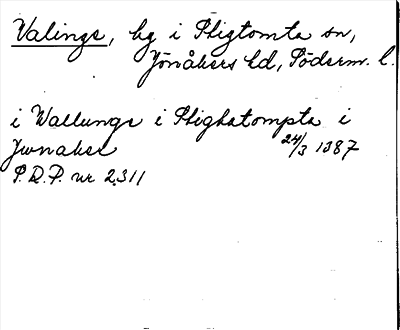 Valinge, by i Stigtomta sn,
Jönåkers hd, Söderm. l.
i Wallunge i Stighatompta i
Jwnaker 24/3 1387
S.R.P. nr 2311